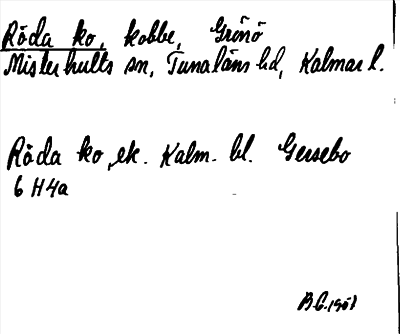 Röda ko, kobbe, Grönö
Misterhults sn, Tunaläns hd, Kalmar l.
Röda ko, ek. Kalm. bl. Gersebo
6 H 4a